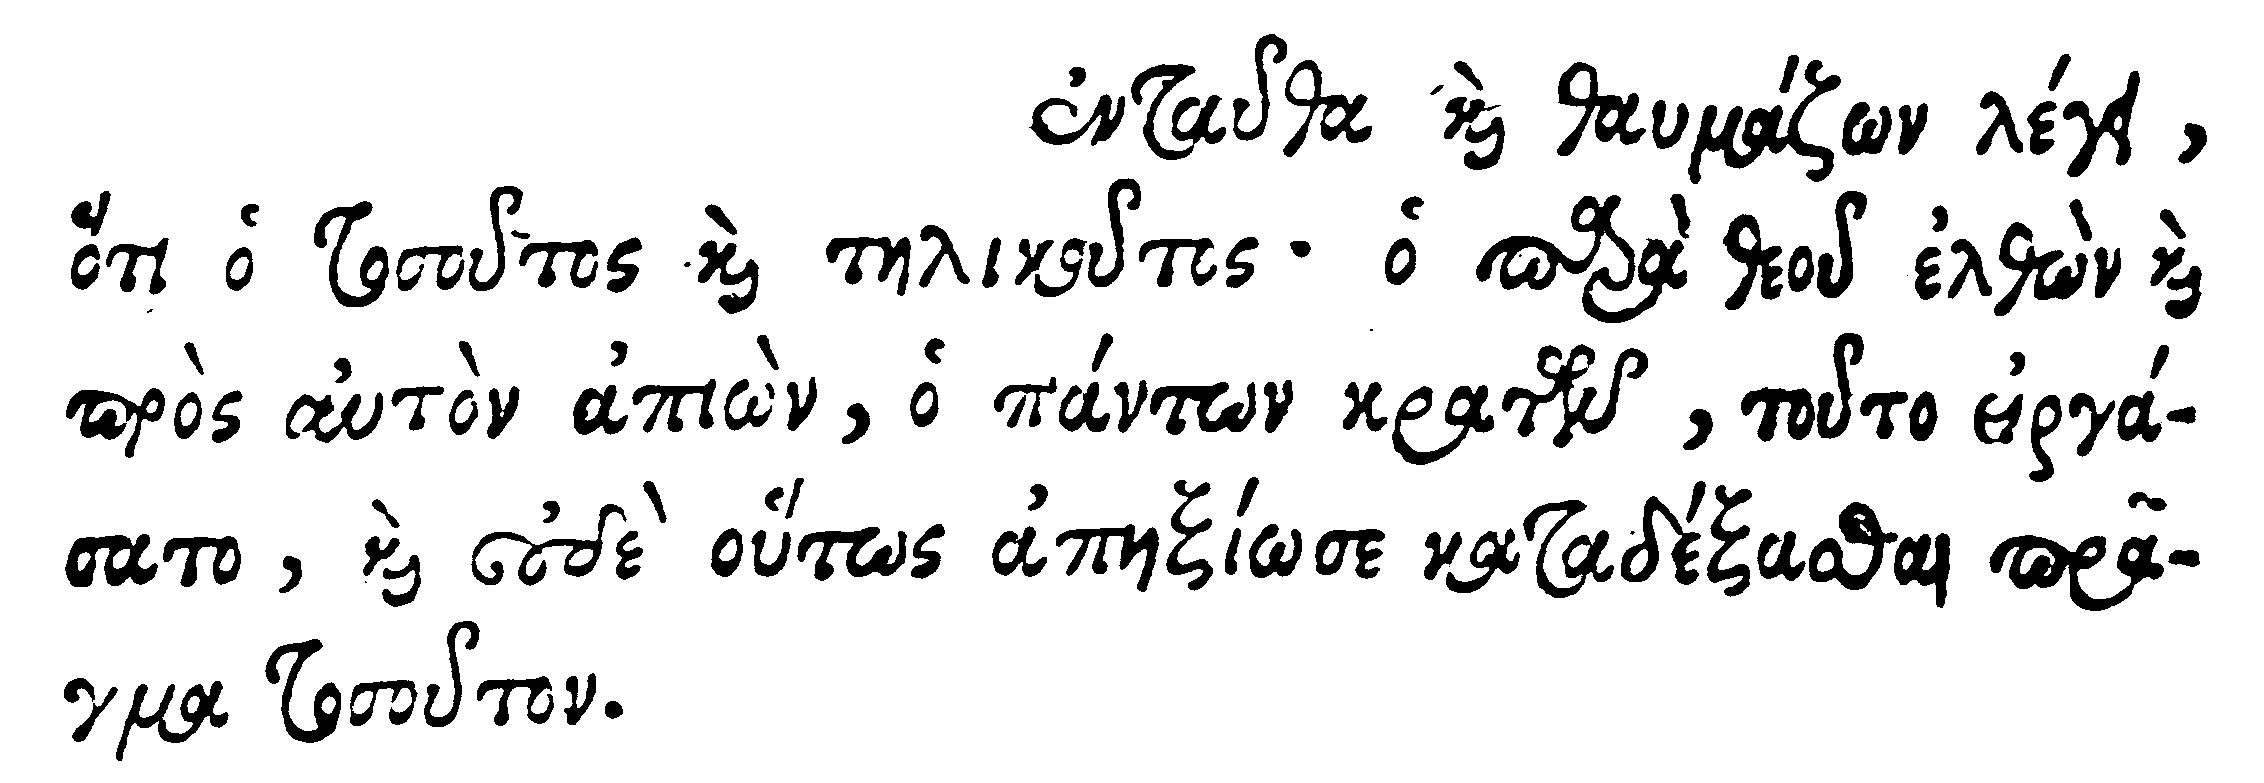 ἐνταῦθα καὶ θαυμάζων λέγει,
ὅτι ὁ τοσοῦτος καὶ τηλικοῦτος· ὁ παρὰ θεοῦ ἐλθὼν καὶ
πρὸς αὐτὸν ἀπιὼν, ὁ πάντων κρατῶν, τοῦτο εἰργά-
σατο, καὶ οὐδὲ οὕτως ἀπηξίωσε καταδέξασθαι πρᾶ-
γμα τοσοῦτον.